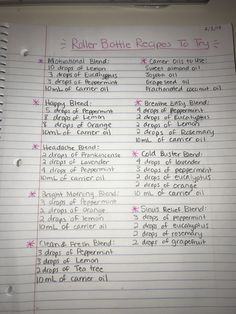 Roller Bottle Recipes To Try
Motivational Blend:
10 drops of Lemon
3 drops of Eucalyptus
3 drops of Peppermint
10mL of carrier oil
Happy Blend:
5 drops of Peppermint
8 drops of Lemon
8 drops of Orange
10mL of carrier oil
Headache Blend:
2 drops of Frankincense
2 drops of Lavender
4 drops of Peppermint
10 mL of carrier oil
Bright Morning Blend:
3 drops of Peppermint
2 drops of Orange
2 drops of lemon
10 mL of carrier oil
Clean & Fresh Blend:
3 drops of Peppermint
3 drops of Lemon
2 drops of Tea tree
10 mL of carrier oil
Carrier Oils to Use:
Sweet almond oil
Jojoba oil
Grapeseed oil
Fractionated coconut oil
Breathe Easy Blend:
4 drops of Peppermint
2 drops of Eucalyptus
2 drops of Lemon
2 drops of Rosemary
10mL of carrier oil
Cold Buster Blend:
4 drops of lavender
3 drops of peppermint
3 drops of eucalyptus
2 drops of orange
10 mL of carrier oil
Sinus Relief Blend:
3 drops of Peppermint
2 drops of eucalyptus
2 drops of rosemary
2 drops of grapefruit